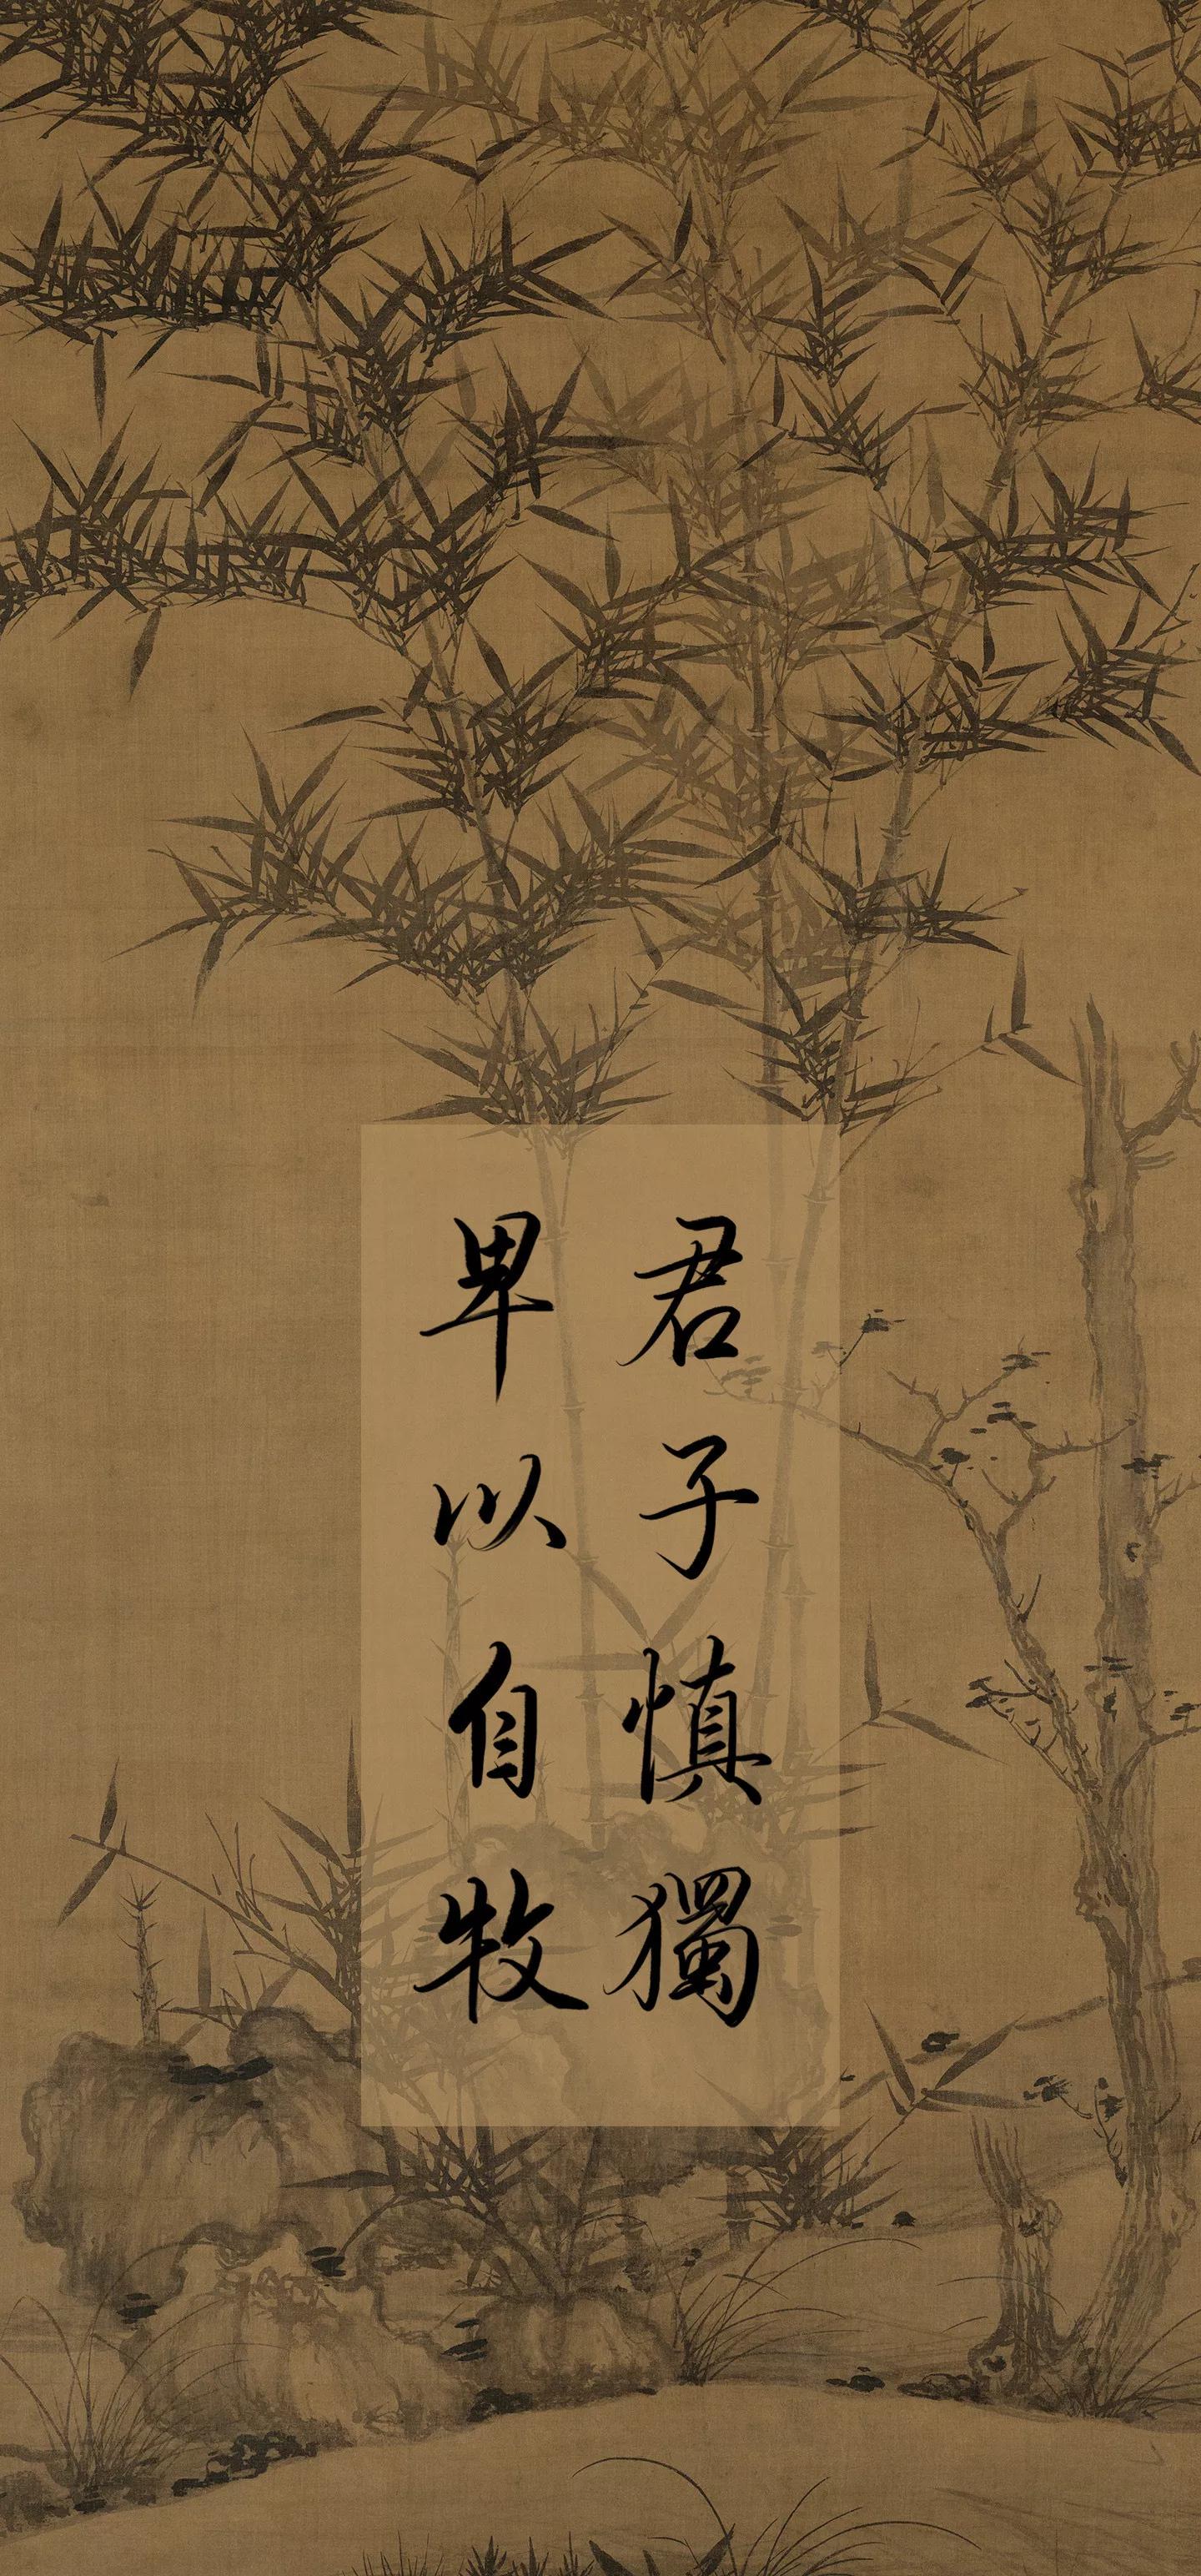 君子慎獨
卑以自牧